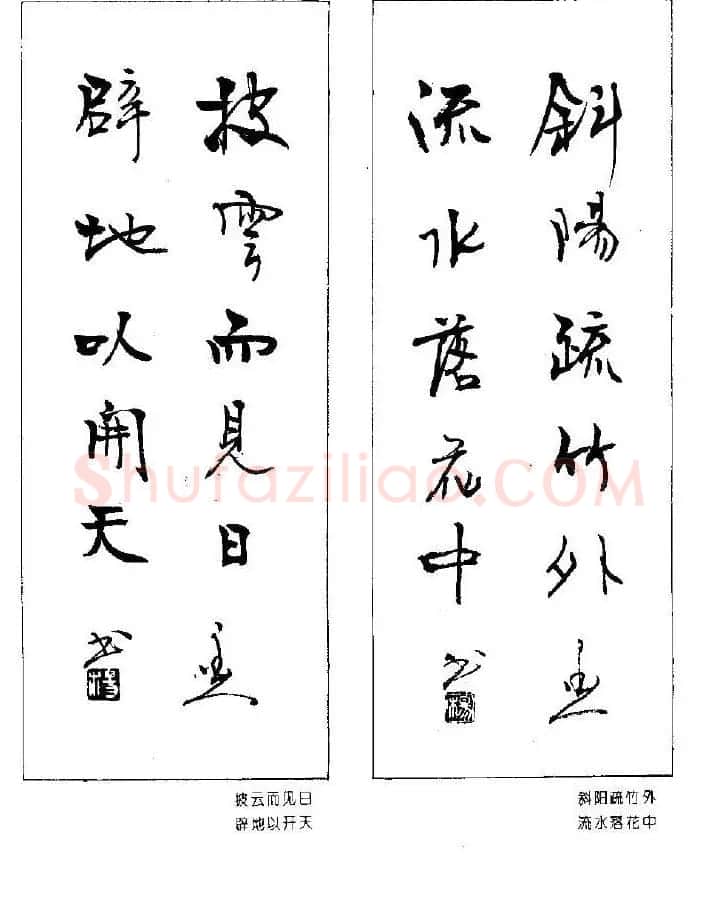 斜陽疏竹外
流水落花中
书
披雲而見日
辟地以開天
书
Shufaziliao.COM
斜阳疏竹外
流水落花中
披云而见日
辟地以开天